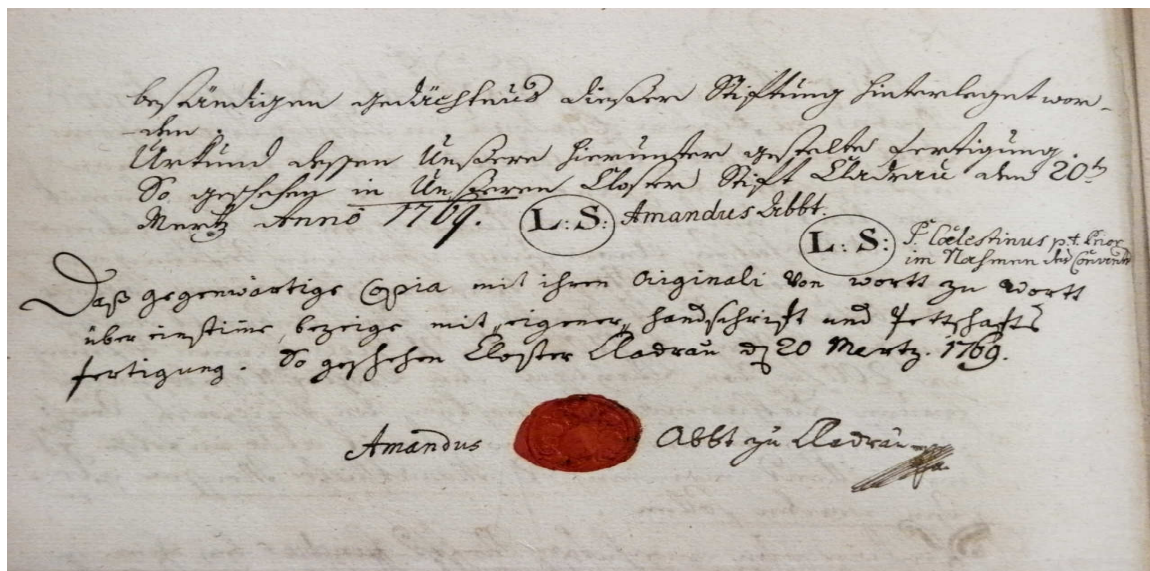 beständigen gedächtnus dießer Stifftung hinterleget wor-
den.
Urkund dessen Unßere hierunter gestelte fertigung.
So geschehen in Unßeren Closter Stifft Cladrau den 20ten
Mertz Anno 1769. L: S: Amandus Abbt.
L: S: P. Cœlestinus p.t. Prior
im Nahmen des Convents
Daß gegenwärtige Copia mit ihren Originali von wortt zu wortt
über einstime, bezeige mit eigener handschrifft und Pettschaffts
fertigung. So geschehen Closter Cladrau d 20 Mertz. 1769.
Amandus Abbt zu Cladrau